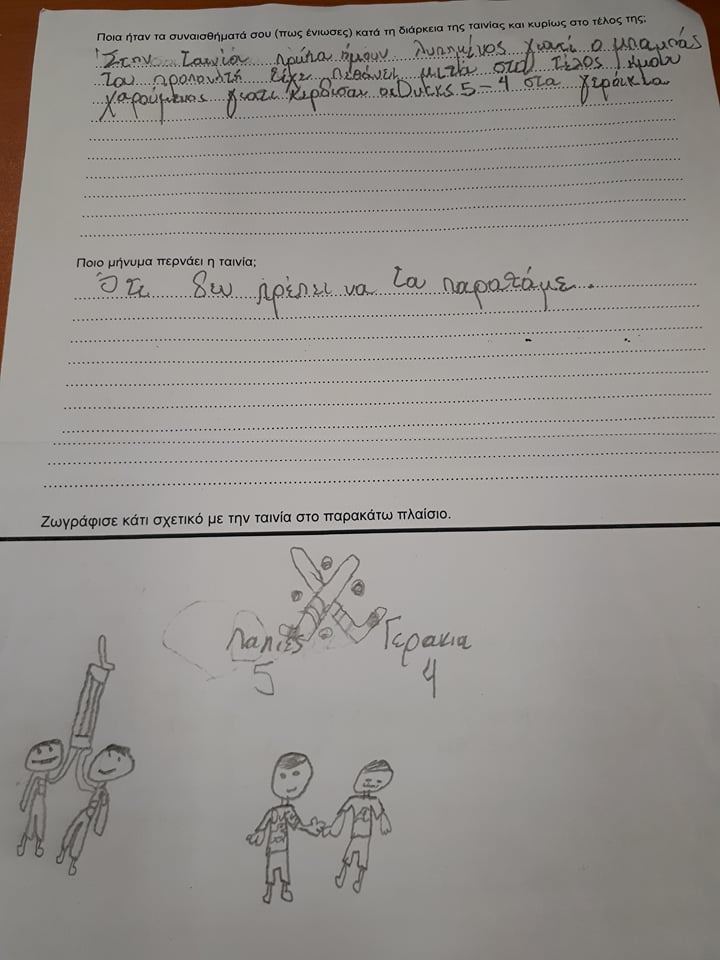 Ποια ήταν τα συναισθήματά σου (πως ένιωσες) κατά τη διάρκεια της ταινίας και κυρίως στο τέλος της;
Στην ταινία πρώτα ήμουν λυπημένος γιατί ο μπαμπάς
του προπονητή είχε πεθάνει μετά στο τέλος ήμουν
χαρούμενος γιατί κέρδισαν οι Ducks 5-4 στα γεράκια
Ποιο μήνυμα περνάει η ταινία;
Ότι δεν πρέπει να τα παρατάμε.
Ζωγράφισε κάτι σχετικό με την ταινία στο παρακάτω πλαίσιο.
Παπιες Γερακια
5 4